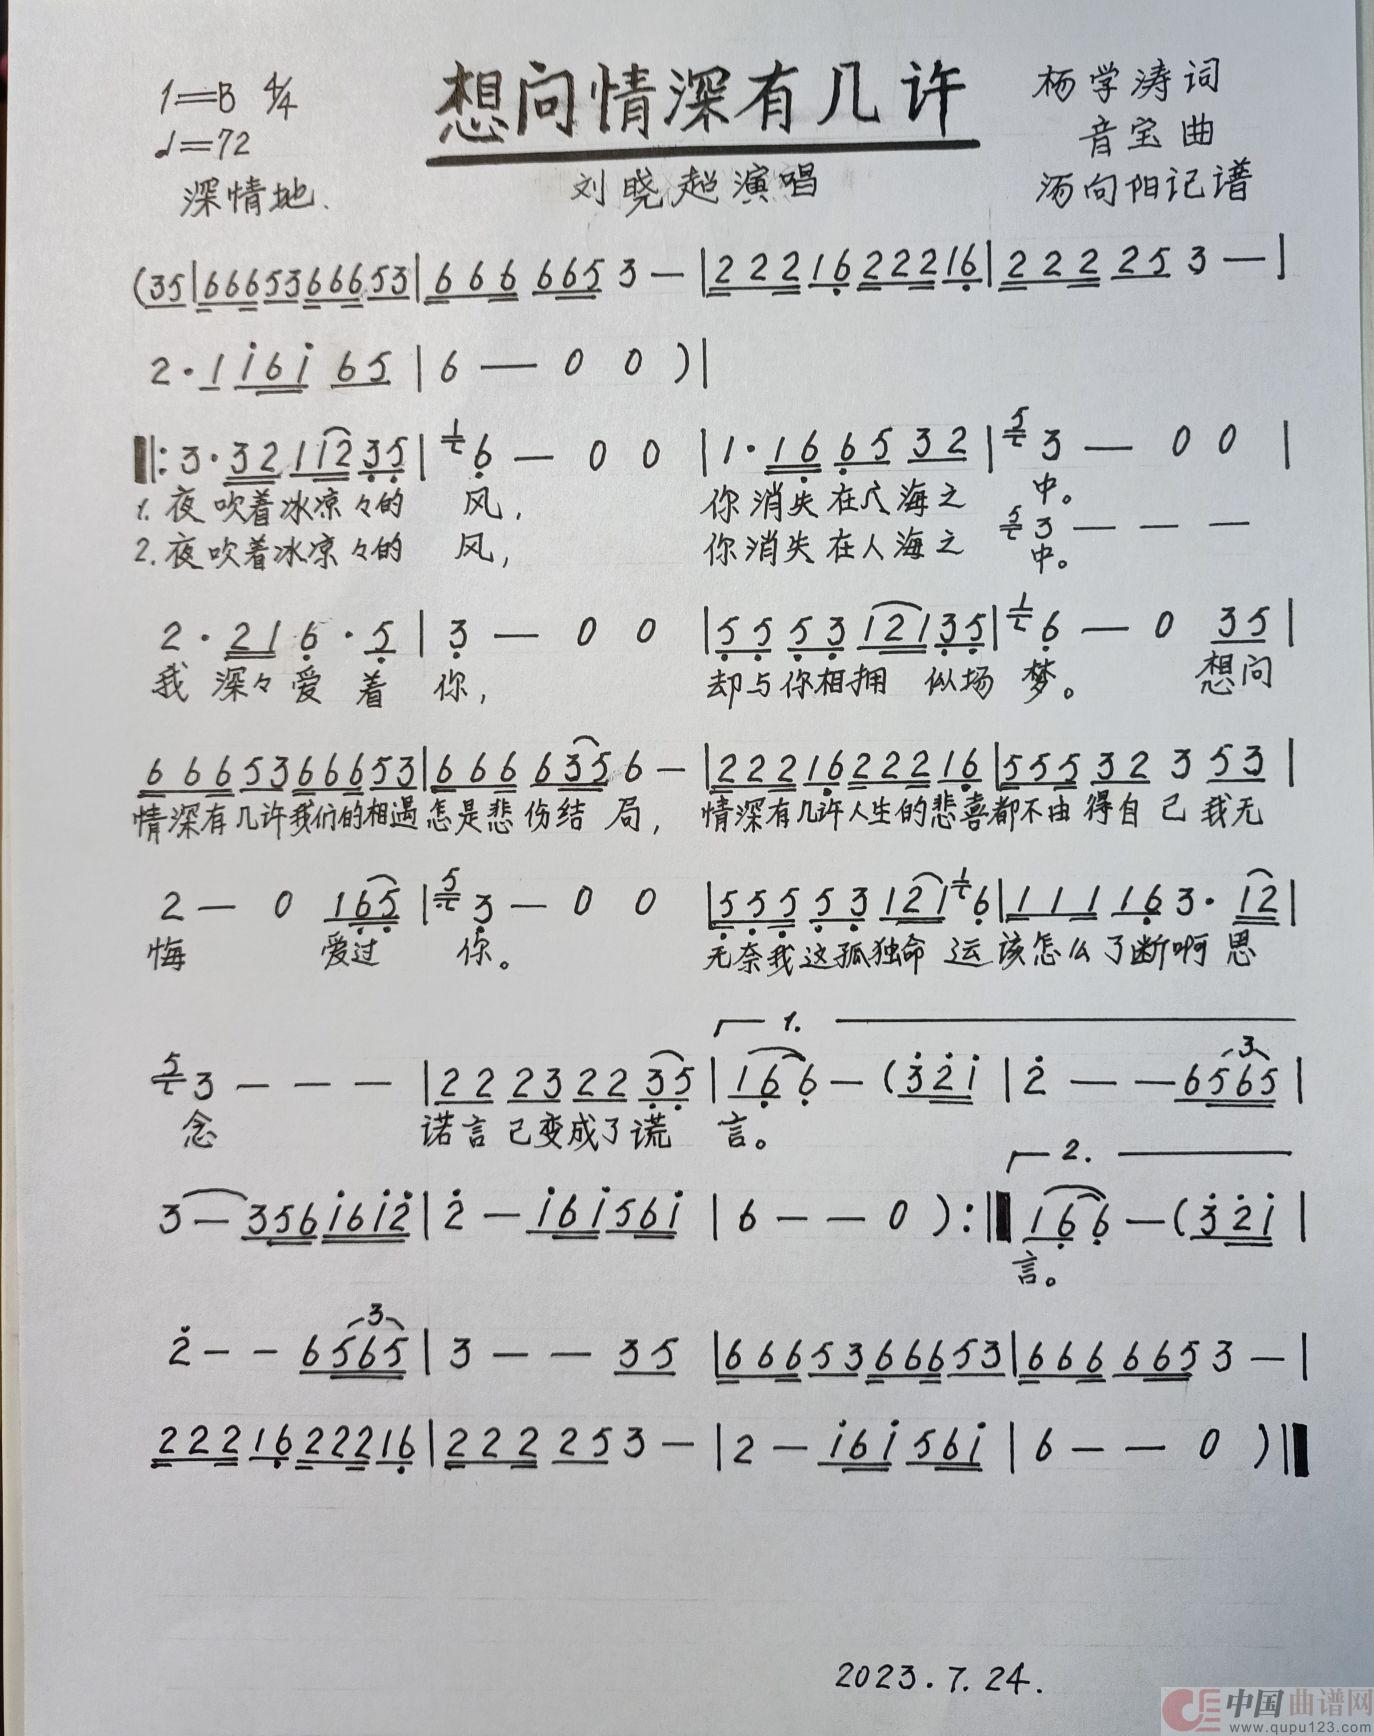 1=B 4/4
想问情深有几许
杨学涛词
♩=72
音宝曲
深情地.
刘晓超演唱
汤向阳记谱
(35|6665366653|666 6653—|2221622216|222 2253—|
2·1i6i 65|6—00)|
‖:3·32 11235|1 6—00|1·16 65 32|5 3—00|
1.夜吹着冰凉々的 风, 你消失在人海之 中。
5 3———
2.夜吹着冰凉々的 风, 你消失在人海之 中。
2·216·5|3—00|55 53 12135|1 6—0 35|
我 深々爱 着 你, 却与你相拥 似场 梦。 想问
6665366653|666 6356—|2221622216|555 32 3 53|
情深有几许我们的相遇怎是悲伤结 局, 情深有几许人生的悲喜都不由 得自 己 我无
2—0 165|5 3—00|555 53 1211 6|111 163·12|
悔 爱过 你。 无奈我这孤独命 运 该怎么了断啊 思
1.
5 3———|22 23 22 35|166—(321|2——6565|
3
念 诺言已变成了谎 言。
2.
3—356i6i2|2—i6i56i|6——0):‖166—(321|
言。
3
2——6565|3——35|6665366653|666 6653—|
2221622216|222 2253—|2—i6i 56i|6——0)‖
2023.7.24.
中国曲谱网
www.qupu123.com